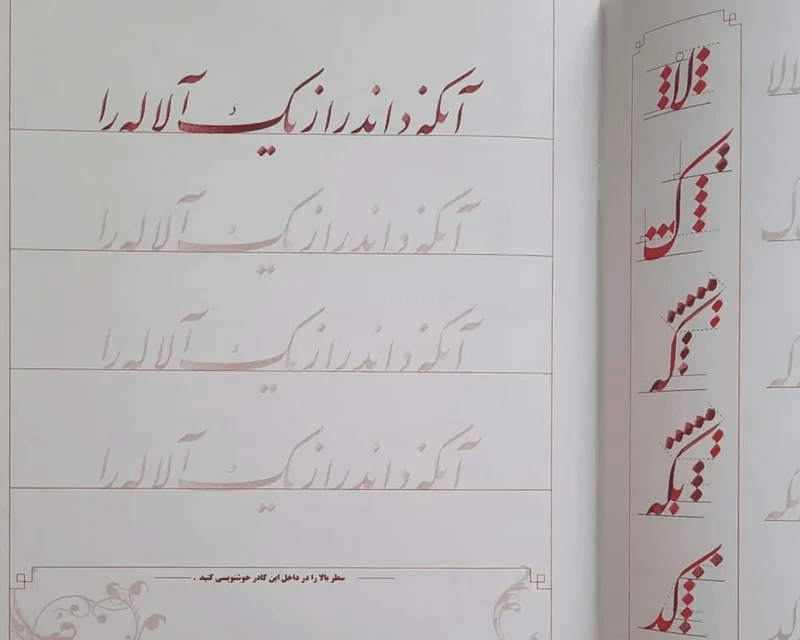 آنکه داند راز یک آلاله را
آنکه داند راز یک آلاله را
آنکه داند راز یک آلاله را
آنکه داند راز یک آلاله را
سطر بالا را در داخل این کادر خوشنویسی کنید .
لا
ک
که
کد